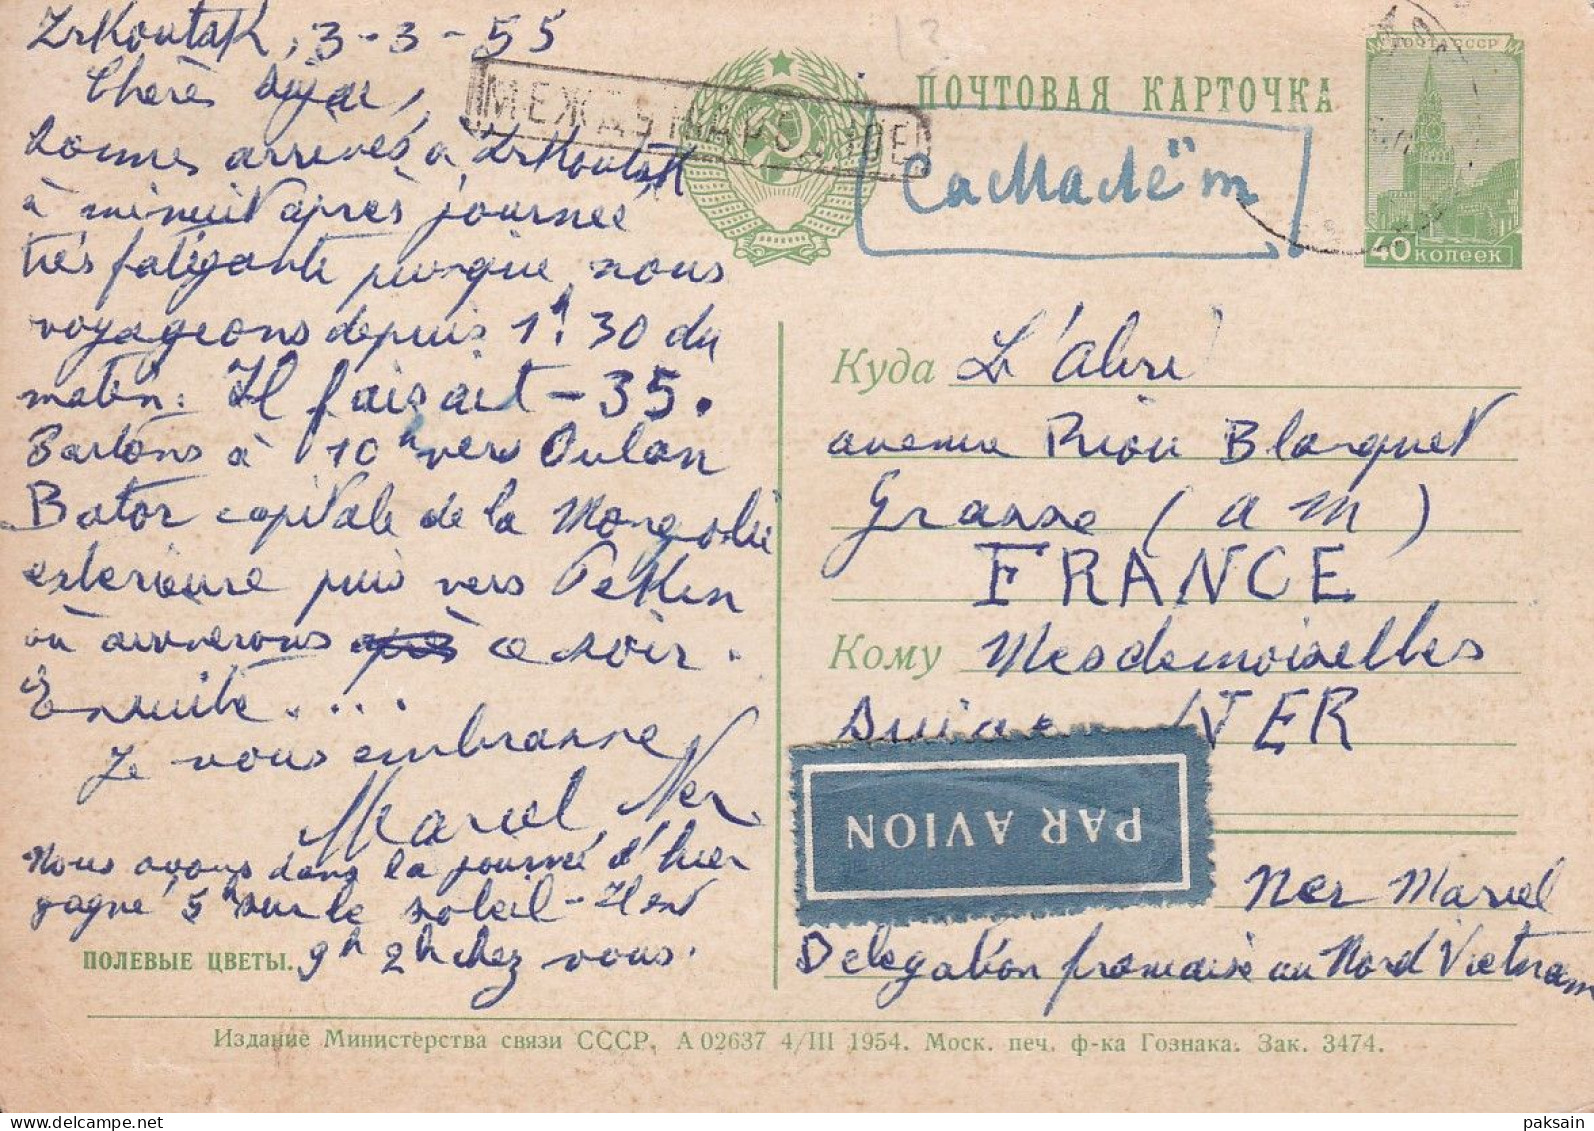 IrKoutsK, 3-3-55
Chères
sommes arrivés à IrKoutsK
à minuit après journée
très fatigante puisque nous
voyageons depuis 1h.30 du
matin. Il faisait -35.
Partons à 10h vers Oulan
Bator capitale de la Mongolie
exterieure puis vers PeKin
où arriverons ce soir.
Ensuite....
Je vous embrasse
Marcel Ner
Nous avons dans la journée d'hier
gagné 5h sur le soleil - Il est
9h 2h chez vous.
ПОЛЕВЫЕ ЦВЕТЫ.
МЕЖДУНАРОДНОЕ
ПОЧТОВАЯ КАРТОЧКА
Самолёт
ПОЧТА СССР
40 КОПЕЕК
Куда L'abri
avenue Riou Blanquet
Grasse (a m)
FRANCE
Кому Mesdemoiselles
NER
PAR AVION
Ner Marcel
Delegation francaise au Nord Vietnam
Издание Министерства связи СССР. А 02637 4/III 1954. Моск. печ. ф-ка Гознака. Зак. 3474.
paksain
delcampe.net